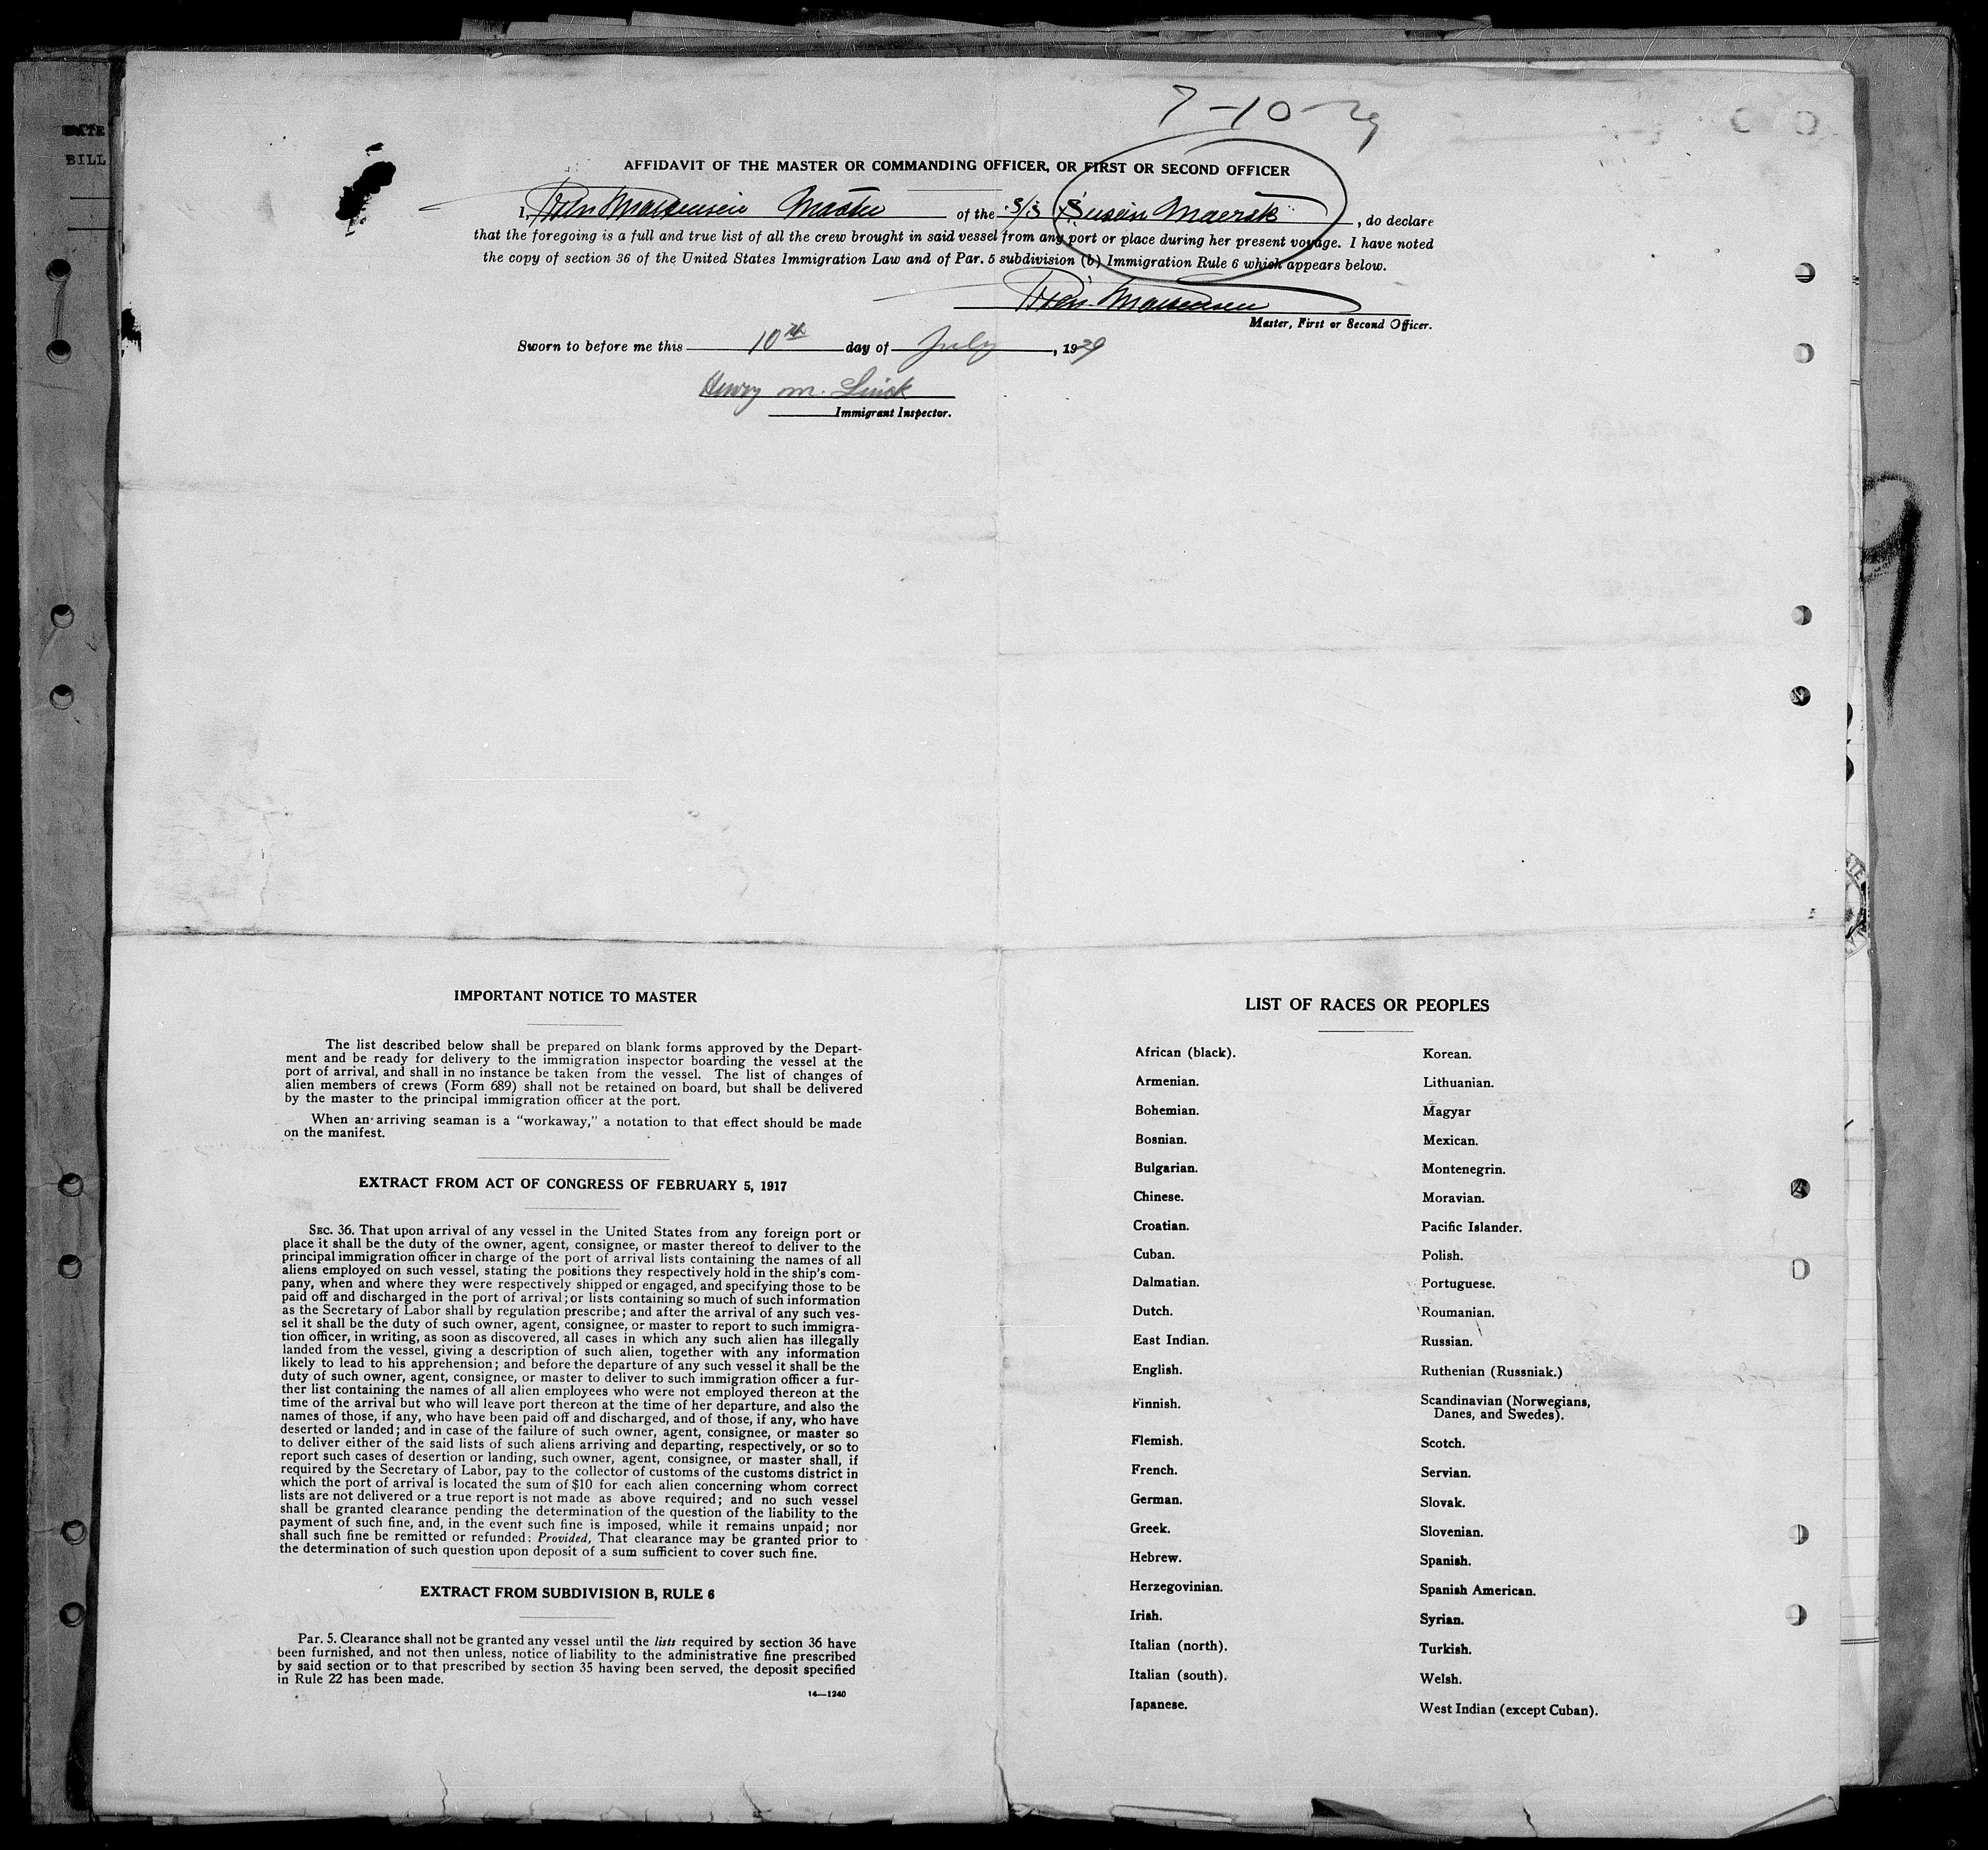 7-10-29
AFFIDAVIT OF THE MASTER OR COMMANDING OFFICER, OR FIRST OR SECOND OFFICER
I, Master of the S/S Susan Maersk, do declare
that the foregoing is a full and true list of all the crew brought in said vessel from any port or place during her present voyage. I have noted
the copy of section 36 of the United States Immigration Law and of Par. 5 subdivision (b) Immigration Rule 6 which appears below.
Master, First or Second Officer.
Sworn to before me this 10th day of July, 1929
Henry M.
Immigrant Inspector.
DATE
BILL
IMPORTANT NOTICE TO MASTER
The list described below shall be prepared on blank forms approved by the Depart-
ment and be ready for delivery to the immigration inspector boarding the vessel at the
port of arrival, and shall in no instance be taken from the vessel. The list of changes of
alien members of crews (Form 689) shall not be retained on board, but shall be delivered
by the master to the principal immigration officer at the port.
When an arriving seaman is a "workaway," a notation to that effect should be made
on the manifest.
EXTRACT FROM ACT OF CONGRESS OF FEBRUARY 5, 1917
SEC. 36. That upon arrival of any vessel in the United States from any foreign port or
place it shall be the duty of the owner, agent, consignee, or master thereof to deliver to the
principal immigration officer in charge of the port of arrival lists containing the names of all
aliens employed on such vessel, stating the positions they respectively hold in the ship's com-
pany, when and where they were respectively shipped or engaged, and specifying those to be
paid off and discharged in the port of arrival; or lists containing so much of such information
as the Secretary of Labor shall by regulation prescribe; and after the arrival of any such ves-
sel it shall be the duty of such owner, agent, consignee, or master to report to such immigra-
tion officer, in writing, as soon as discovered, all cases in which any such alien has illegally
landed from the vessel, giving a description of such alien, together with any information
likely to lead to his apprehension; and before the departure of any such vessel it shall be the
duty of such owner, agent, consignee, or master to deliver to such immigration officer a fur-
ther list containing the names of all alien employees who were not employed thereon at the
time of the arrival but who will leave port thereon at the time of her departure, and also the
names of those, if any, who have been paid off and discharged, and of those, if any, who have
deserted or landed; and in case of the failure of such owner, agent, consignee, or master so
to deliver either of the said lists of such aliens arriving and departing, respectively, or so to
report such cases of desertion or landing, such owner, agent, consignee, or master shall, if
required by the Secretary of Labor, pay to the collector of customs of the customs district in
which the port of arrival is located the sum of $10 for each alien concerning whom correct
lists are not delivered or a true report is not made as above required; and no such vessel
shall be granted clearance pending the determination of the question of the liability to the
payment of such fine, and, in the event such fine is imposed, while it remains unpaid; nor
shall such fine be remitted or refunded: Provided, That clearance may be granted prior to
the determination of such question upon deposit of a sum sufficient to cover such fine.
EXTRACT FROM SUBDIVISION B, RULE 6
Par. 5. Clearance shall not be granted any vessel until the lists required by section 36 have
been furnished, and not then unless, notice of liability to the administrative fine prescribed
by said section or to that prescribed by section 35 having been served, the deposit specified
in Rule 22 has been made.
14—1240
LIST OF RACES OR PEOPLES
African (black).
Armenian.
Bohemian.
Bosnian.
Bulgarian.
Chinese.
Croatian.
Cuban.
Dalmatian.
Dutch.
East Indian.
English.
Finnish.
Flemish.
French.
German.
Greek.
Hebrew.
Herzegovinian.
Irish.
Italian (north).
Italian (south).
Japanese.
Korean.
Lithuanian.
Magyar
Mexican.
Montenegrin.
Moravian.
Pacific Islander.
Polish.
Portuguese.
Roumanian.
Russian.
Ruthenian (Russniak.)
Scandinavian (Norwegians,
Danes, and Swedes).
Scotch.
Servian.
Slovak.
Slovenian.
Spanish.
Spanish American.
Syrian.
Turkish.
Welsh.
West Indian (except Cuban).